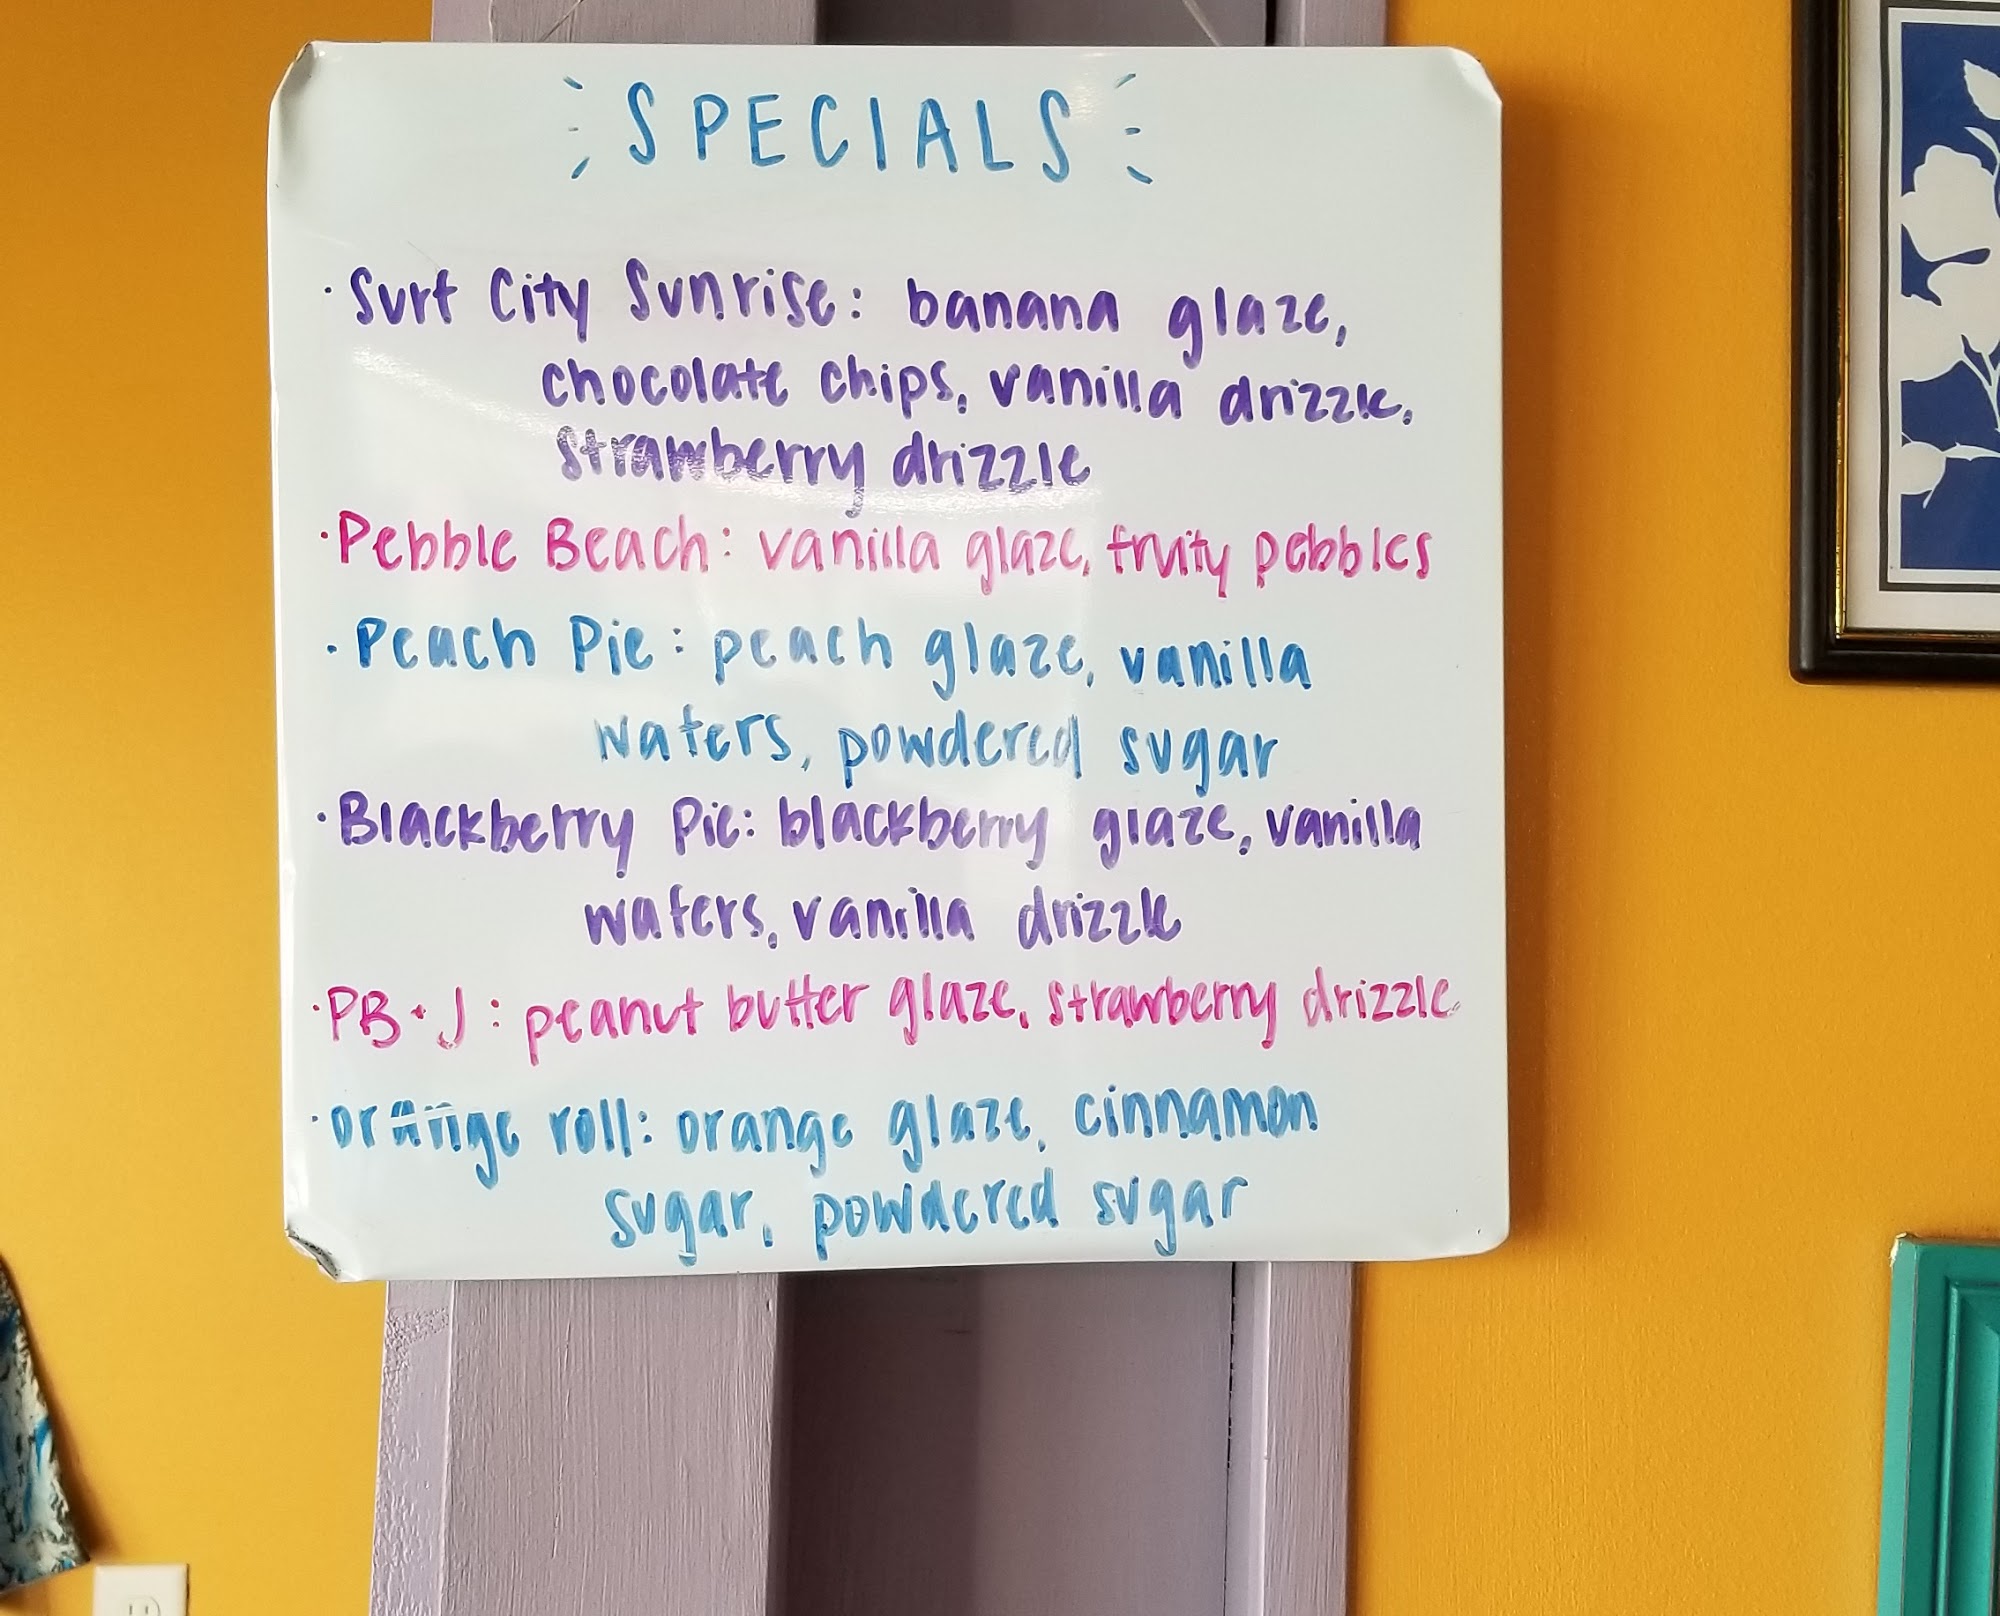 SPECIALS
· Surf City Sunrise: banana glaze,
chocolate chips, vanilla drizzle,
strawberry drizzle
· Pebble Beach: vanilla glaze, fruity pebbles
· Peach Pie: peach glaze, vanilla
wafers, powdered sugar
· Blackberry Pie: blackberry glaze, vanilla
wafers, vanilla drizzle
· PB + J: peanut butter glaze, strawberry drizzle
· orange roll: orange glaze, cinnamon
sugar, powdered sugar